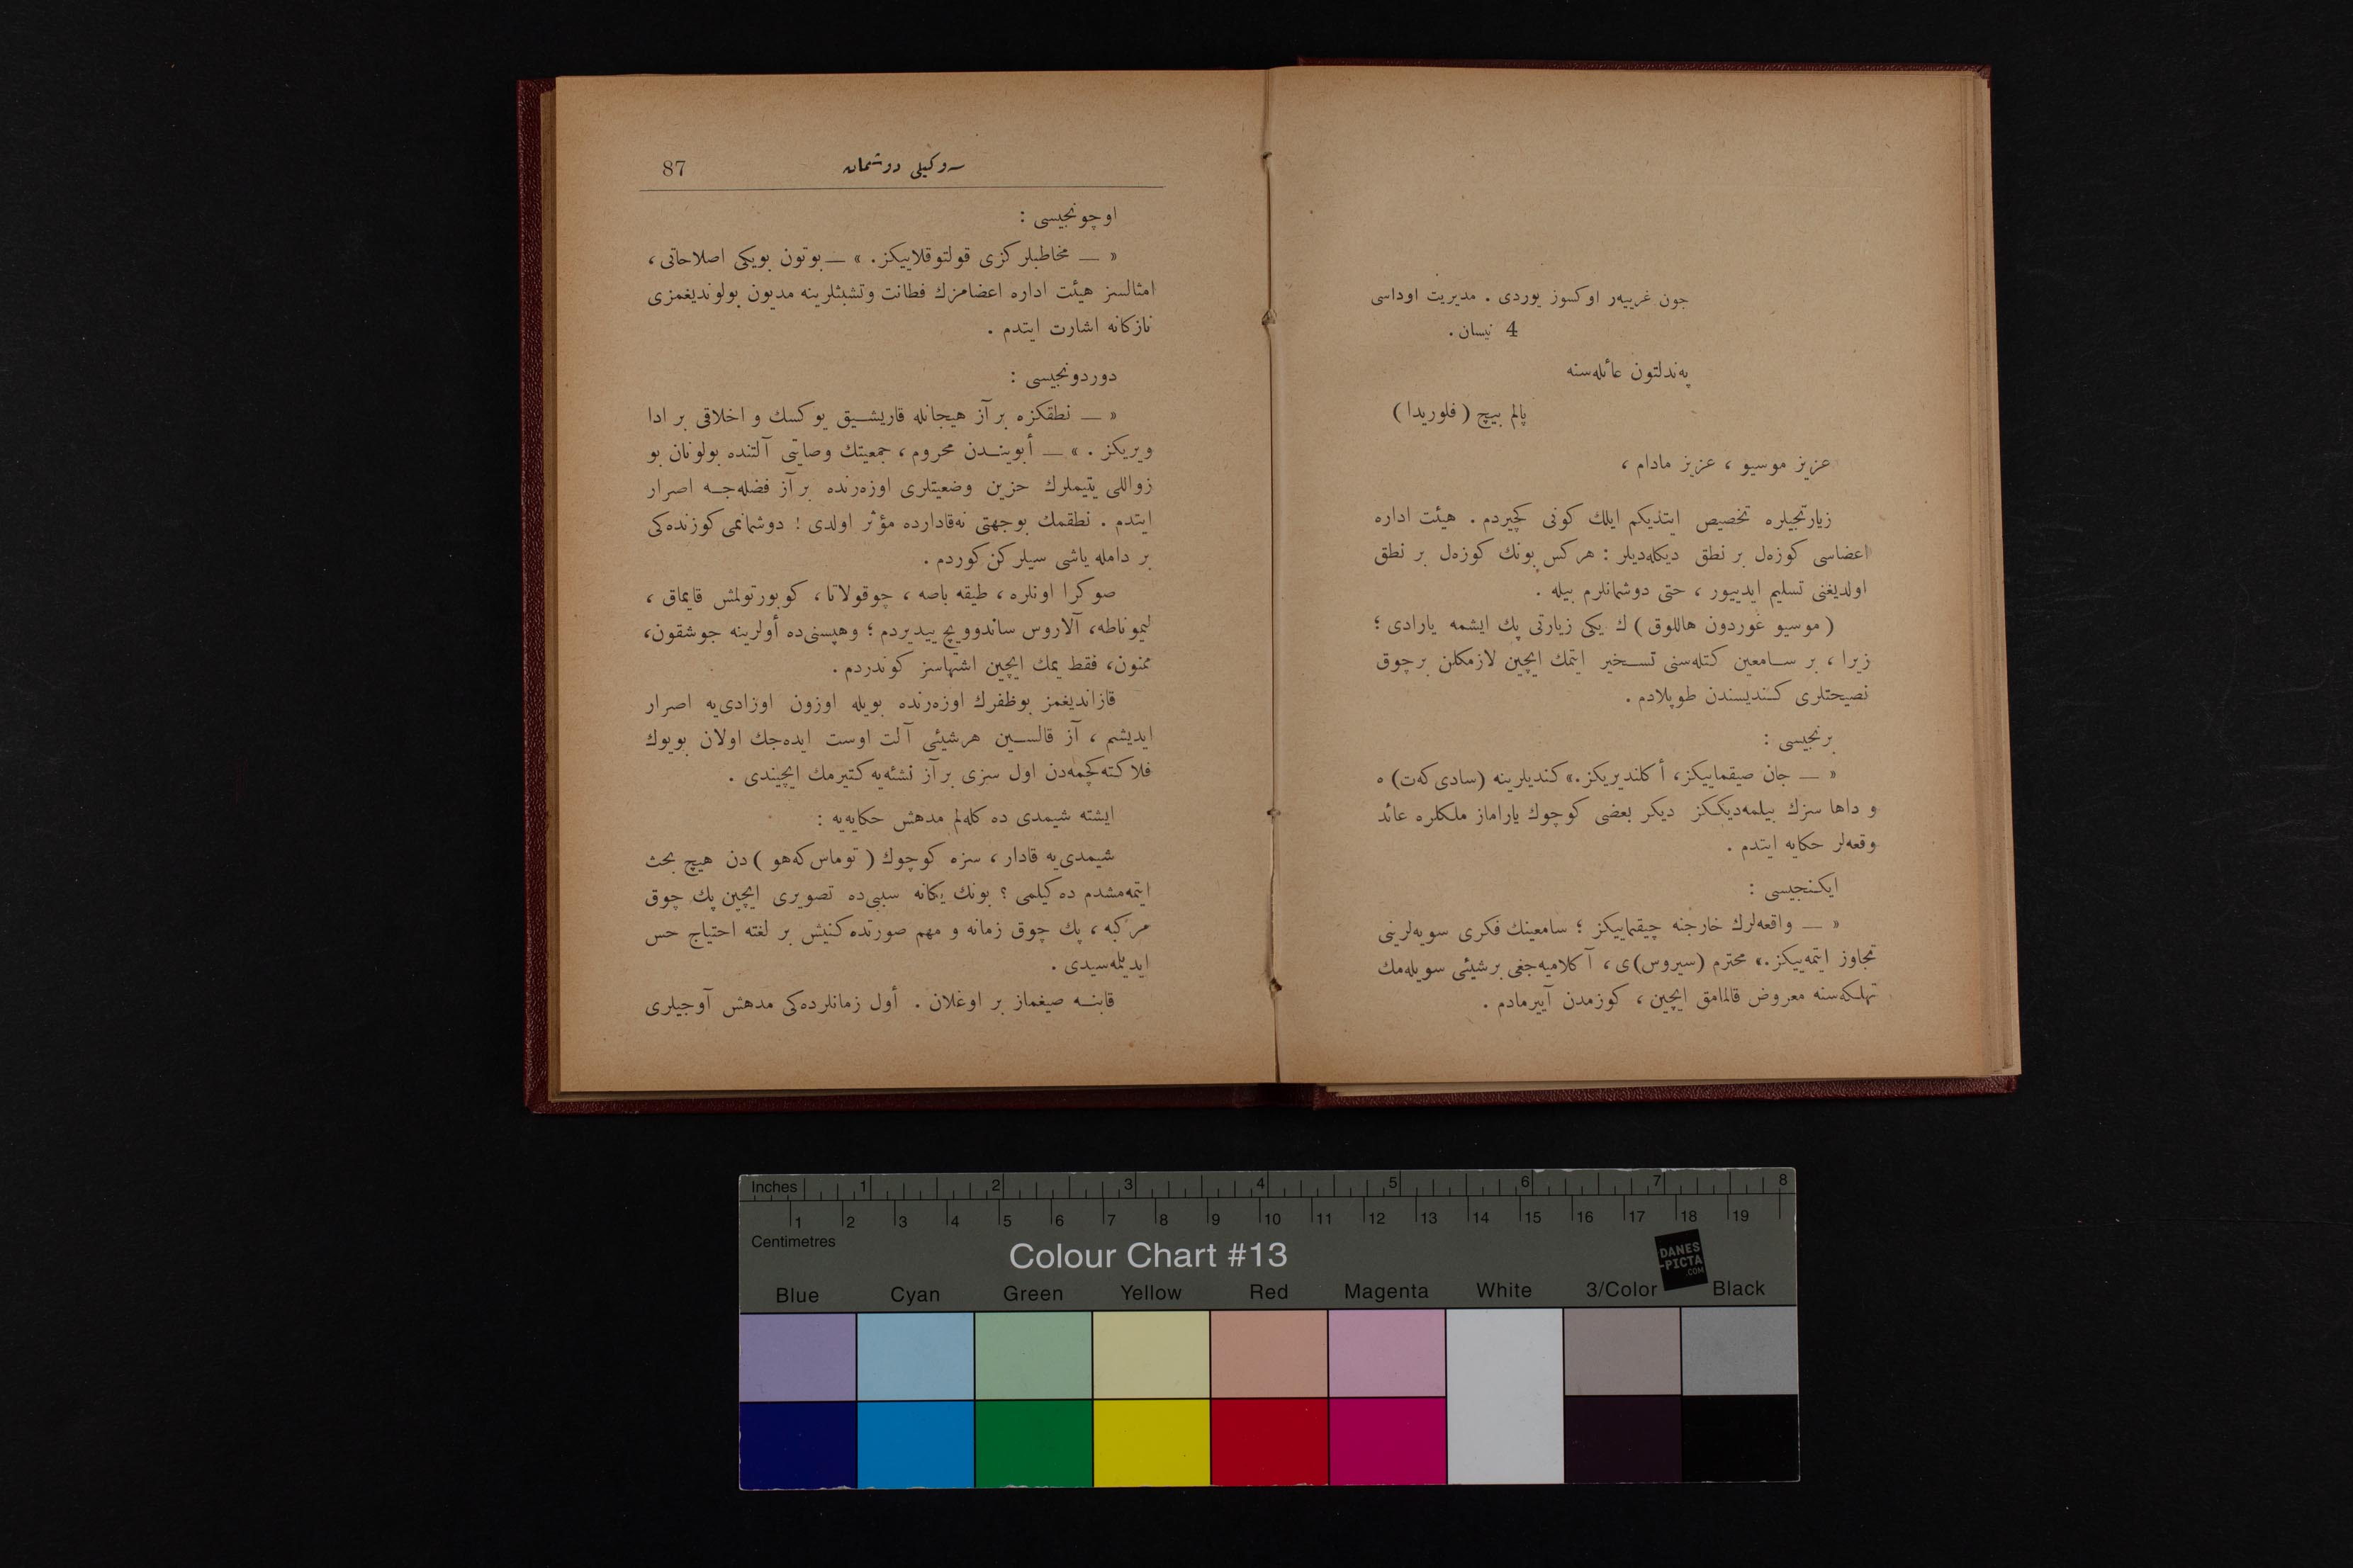 جون غرییه‌ر اوکسوز یوردی . مدیریت اوداسی
4 نیسان .
په‌ندلتون عائله‌سنه
پالم بیچ ( فلوریدا )
عزیز موسیو ، عزیز مادام ،
زیارتجیلره تخصیص ایتدیکم ایلك کونی کچیردم . هیئت اداره
اعضاسی کوزه‌ل بر نطق دیکله‌دیلر : هرکس بونك کوزه‌ل بر نطق
اولدیغنی تسلیم ایدییور ، حتی دوشمانلرم بیله .
( موسیو غوردون هاللوق ) ك یکی زیارتی پك ایشمه یارادی ؛
زیرا ، بر سامعین کتله‌سنی تسخیر ایتمك ایچین لازمکلن برچوق
نصیحتلری کندیسندن طوپلادم .
برنجیسی :
« — جان صیقماییکز، أکلندیریکز.» کندیلرینه (سادی که‌ت) ه
و داها سزك بیلمه‌دیککز دیکر بعضی کوچوك یاراماز ملکلره عائد
وقعه‌لر حکایه ایتدم .
ایکنجیسی :
« — واقعه‌لرك خارجنه چیقماییکز ؛ سامعینك فکری سویه‌لرینی
تجاوز ایتمه‌ییکز.» محترم (سیروس)ی ، آکلامیه‌جغی برشیئی سویله‌مك
تهلکه‌سنه معروض قالمامق ایچین ، کوزمدن آییرمادم .
سوکیلی دوشمان 87
اوچونجیسی :
« — مخاطبلرکزی قولتوقلاییکز. » — بوتون بویکی اصلاحاتی ،
امثالسز هیئت اداره اعضامزك فطانت وتشبثلرینه مدیون بولوندیغمزی
نازکانه اشارت ایتدم .
دوردونجیسی :
« — نطقکزه برآز هیجانله قاریشیق یوکسك و اخلاقی بر ادا
ویریکز . » — أبویندن محروم ، جمعیتك وصایتی آلتنده بولونان بو
زواللی یتیملرك حزین وضعیتلری اوزه‌رنده برآز فضله‌جه اصرار
ایتدم . نطقمك بوجهتی نه‌قادارده مؤثر اولدی ! دوشمانمی کوزنده‌کی
بر دامله یاشی سیلرکن کوردم .
صوکرا اونلره ، طیقه باصه ، چوقولاتا ، کوپورتولمش قایماق ،
لیموناطه، آلاروس ساندوویچ ییدیردم ؛ وهپسنی‌ده أولرینه جوشقون،
ممنون، فقط یمك ایچین اشتهاسز کوندردم .
قازاندیغمز بوظفرك اوزه‌رنده بویله اوزون اوزادی‌یه اصرار
ایدیشم ، آز قالسین هرشیئی آلت اوست ایده‌جك اولان بویوك
فلاکته‌کچمه‌دن اول سزی برآز نشئه‌یه کتیرمك ایچیندی .
ایشته شیمدی ده کله‌لم مدهش حکایه‌یه :
شیمدی‌یه قادار ، سزه کوچوك ( توماس که‌هو ) دن هیچ بحث
ایتمه‌مشدم ده‌کیلمی ؟ بونك یکانه سببی‌ده تصویری ایچین پك چوق
مرکبه ، پك چوق زمانه و مهم صورتده‌کنیش بر لغته احتیاج حس
ایدیلمه‌سیدی .
قابنه صیغماز بر اوغلان . أول زمانلرده‌کی مدهش آوجیلری
Inches 1 2 3 4 5 6 7 8
1 2 3 4 5 6 7 8 9 10 11 12 13 14 15 16 17 18 19
Centimetres
Colour Chart #13
DANES
-PICTA
.COM
Blue Cyan Green Yellow Red Magenta White 3/Color Black